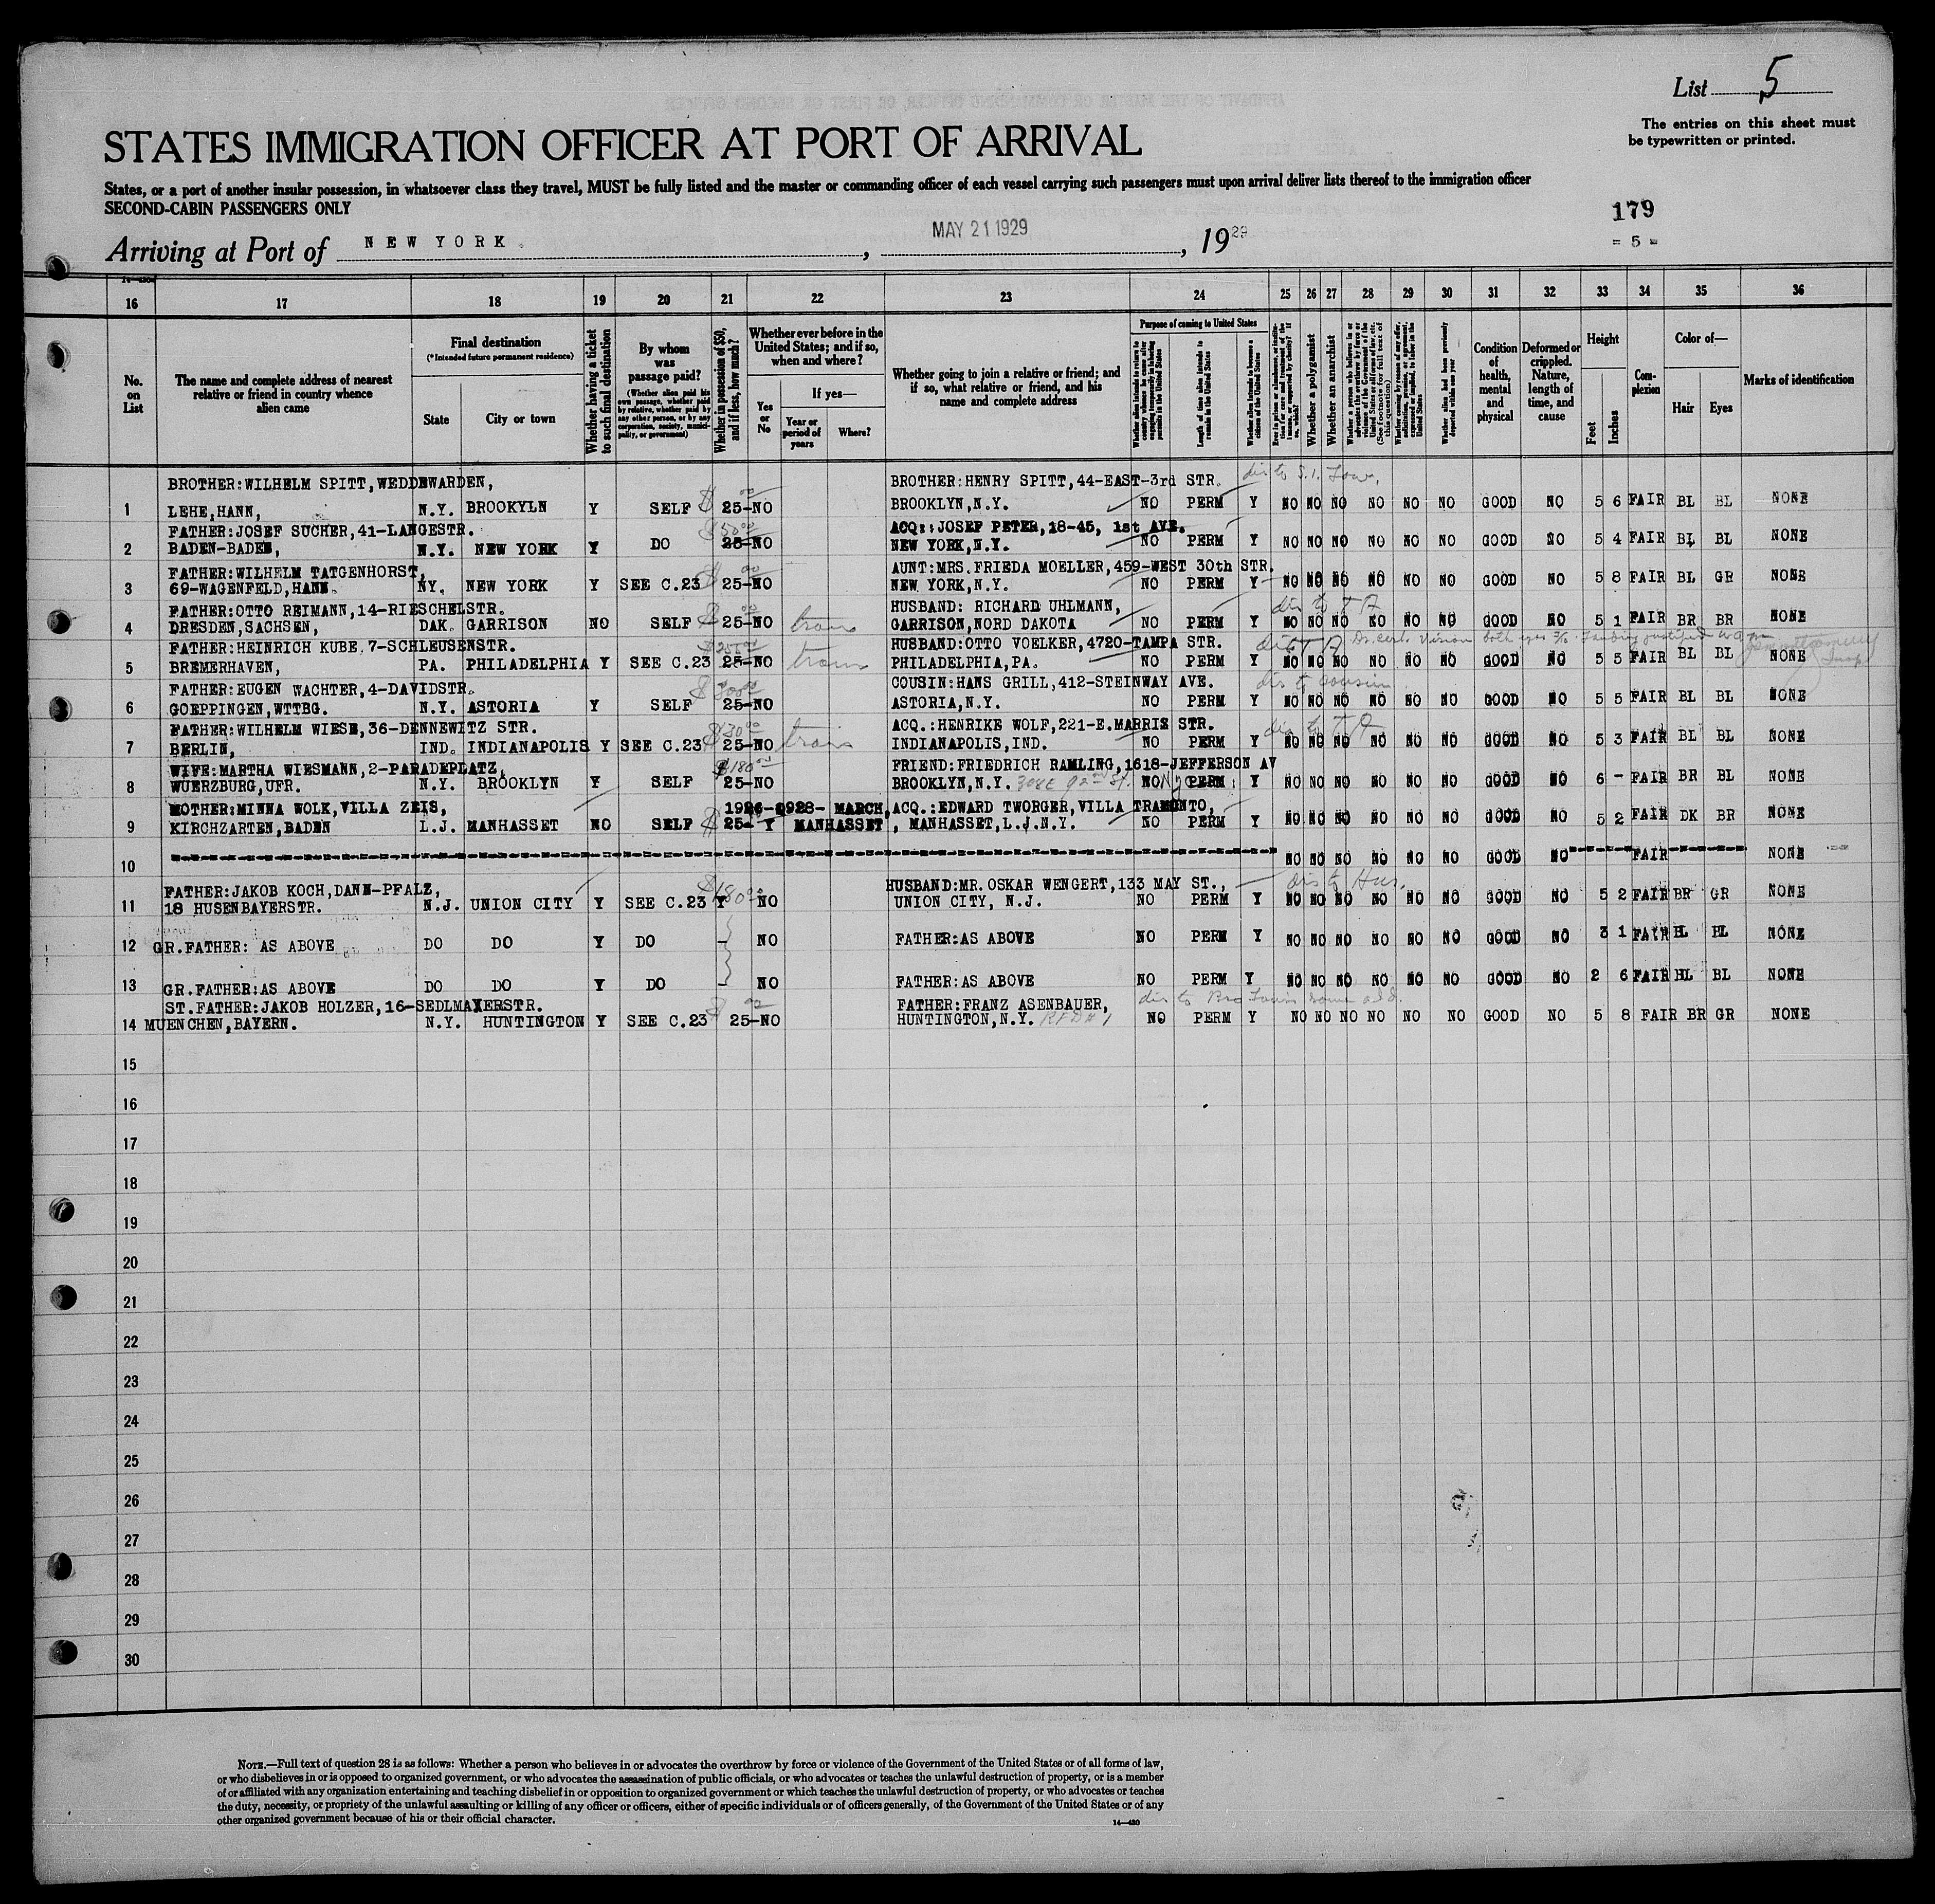 List 5
The entries on this sheet must
be typewritten or printed.
STATES IMMIGRATION OFFICER AT PORT OF ARRIVAL
States, or a port of another insular possession, in whatsoever class they travel, MUST be fully listed and the master or commanding officer of each vessel carrying such passengers must upon arrival deliver lists thereof to the immigration officer
SECOND-CABIN PASSENGERS ONLY
179
= 5 =
Arriving at Port of NEW YORK. , MAY 21 1929 , 1929
16 17 18 19 20 21 22 23 24 25 26 27 28 29 30 31 32 33 34 35 36
No. on List
The name and complete address of nearest relative or friend in country whence alien came
Final destination
(*Intended future permanent residence)
State
City or town
Whether having a ticket to such final destination
By whom was passage paid?
(Whether alien paid his own passage, whether paid by relative, whether paid by any other person, or by any corporation, society, municipality, or government)
Whether in possession of $50, and if less, how much?
Whether ever before in the United States; and if so, when and where?
Yes or No
If yes—
Year or period of years
Where?
Whether going to join a relative or friend; and if so, what relative or friend, and his name and complete address
Purpose of coming to United States
Length of time alien intends to remain in the United States
Whether a polygamist
Whether an anarchist
Condition of health, mental and physical
Deformed or crippled. Nature, length of time, and cause
Height
Feet
Inches
Complexion
Color of—
Hair
Eyes
Marks of identification
BROTHER:WILHELM SPITT,WEDDEWARDEN, BROTHER:HENRY SPITT,44-EAST-3rd STR.
1 LEHE,HANN, N.Y. BROOKYLN Y SELF 25-NO BROOKLYN,N.Y. NO PERM Y NO NO NO NO NO NO GOOD NO 5 6 FAIR BL BL NONE
FATHER:JOSEF SUCHER,41-LANGESTR. $50 ACQ.:JOSEF PETER,18-45, 1st AVE.
2 BADEN-BADEN, N.Y. NEW YORK Y DO 25-NO NEW YORK,N.Y. NO PERM Y NO NO NO NO NO NO GOOD NO 5 4 FAIR BL BL NONE
FATHER:WILHELM TATGENHORST, AUNT:MRS.FRIEDA MOELLER,459-WEST 30th STR.
3 69-WAGENFELD,HANN. NY. NEW YORK Y SEE C.23 25-NO NEW YORK,N.Y. NO PERM Y NO NO NO NO NO NO GOOD NO 5 8 FAIR BL GR NONE
FATHER:OTTO REIMANN,14-RIESCHELSTR. HUSBAND: RICHARD UHLMANN,
4 DRESDEN,SACHSEN, DAK. GARRISON NO SELF 25-NO GARRISON,NORD DAKOTA NO PERM Y NO NO NO NO NO NO GOOD NO 5 1 FAIR BR BR NONE
FATHER:HEINRICH KUBE,7-SCHLEUSENSTR. HUSBAND:OTTO VOELKER,4720-TAMPA STR.
5 BREMERHAVEN, PA. PHILADELPHIA Y SEE C.23 25-NO PHILADELPHIA,PA. NO PERM Y NO NO NO NO NO NO GOOD NO 5 5 FAIR BL BL NONE
FATHER:EUGEN WACHTER,4-DAVIDSTR. COUSIN:HANS GRILL,412-STEINWAY AVE. dis to cousin
6 GOEPPINGEN,WTTBG. N.Y. ASTORIA Y SELF 25-NO ASTORIA,N.Y. NO PERM Y NO NO NO NO NO NO GOOD NO 5 5 FAIR BL BL NONE
FATHER:WILHELM WIESE,36-DENNEWITZ STR. $30 ACQ.:HENRIKE WOLF,221-E.MARRIS STR.
7 BERLIN, IND. INDIANAPOLIS Y SEE C.23 25-NO INDIANAPOLIS,IND. NO PERM Y NO NO NO NO NO NO GOOD NO 5 3 FAIR BL BL NONE
WIFE:MARTHA WIESMANN,2-PARADEPLATZ, $180 FRIEND:FRIEDRICH RAMLING,1618-JEFFERSON AV
8 WUERZBURG,UFR. N.Y. BROOKLYN Y SELF 25-NO BROOKLYN,N.Y. 308E 92nd St. NO PERM Y NO NO NO NO NO NO GOOD NO 6 - FAIR BR BL NONE
MOTHER:MINNA WOLK,VILLA ZEIS, 1926-0928- MARCH, ACQ.:EDWARD TWORGER,VILLA TRAMONTO,
9 KIRCHZARTEN,BADEN L.J. MANHASSET NO SELF 25- Y MANHASSET , MANHASSET,L.J.N.Y. NO PERM Y NO NO NO NO NO NO GOOD NO 5 2 FAIR DK BR NONE
10 NO NO NO NO NO NO GOOD NO FAIR NONE
FATHER:JAKOB KOCH,DANN-PFALZ, $180 HUSBAND:MR.OSKAR WENGERT,133 MAY ST., dis to Hus.
11 18 HUSENBAYERSTR. N.J. UNION CITY Y SEE C.23 Y NO UNION CITY, N.J. NO PERM Y NO NO NO NO NO NO GOOD NO 5 2 FAIR BR GR NONE
12 GR.FATHER: AS ABOVE DO DO Y DO - NO FATHER:AS ABOVE NO PERM Y NO NO NO NO NO NO GOOD NO 3 1 FAIR BL BL NONE
13 GR.FATHER:AS ABOVE DO DO Y DO - NO FATHER:AS ABOVE NO PERM Y NO NO NO NO NO NO GOOD NO 2 6 FAIR BL BL NONE
ST.FATHER:JAKOB HOLZER,16-SEDLMAYERSTR. FATHER:FRANZ ASENBAUER,
14 MUENCHEN,BAYERN. N.Y. HUNTINGTON Y SEE C.23 25-NO HUNTINGTON,N.Y. RFD#1 NO PERM Y NO NO NO NO NO NO GOOD NO 5 8 FAIR BR GR NONE
15
16
17
18
19
20
21
22
23
24
25
26
27
28
29
30
NOTE.—Full text of question 28 is as follows: Whether a person who believes in or advocates the overthrow by force or violence of the Government of the United States or of all forms of law,
or who disbelieves in or is opposed to organized government, or who advocates the assassination of public officials, or who advocates or teaches the unlawful destruction of property, or is a member
of or affiliated with any organization entertaining and teaching disbelief in or opposition to organized government or which teaches the unlawful destruction of property, or who advocates or teaches
the duty, necessity, or propriety of the unlawful assaulting or killing of any officer or officers, either of specific individuals or of officers generally, of the Government of the United States or of any
other organized government because of his or their official character.
14—430